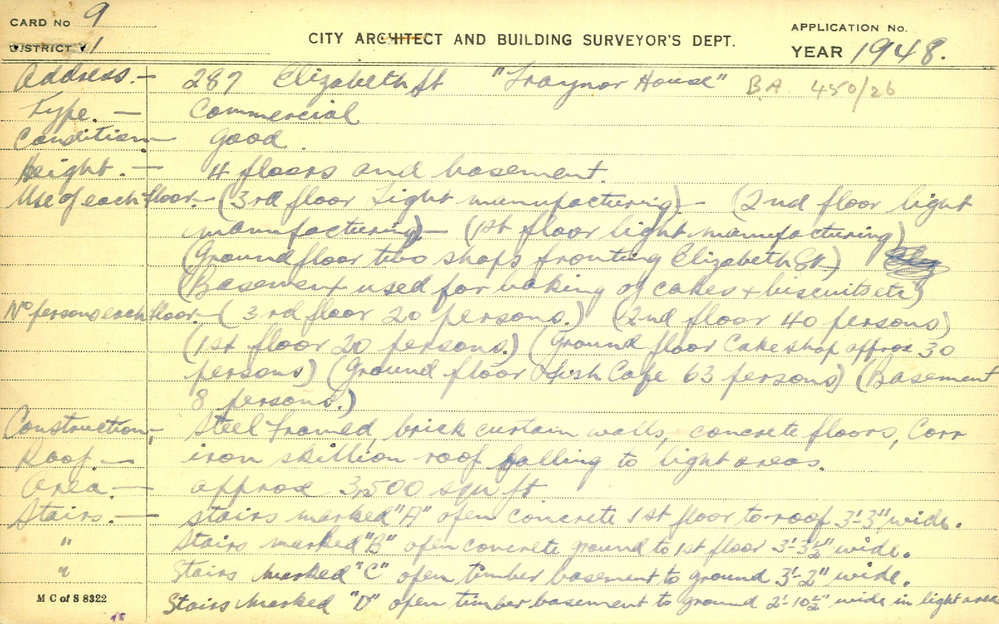 CARD No 9
APPLICATION No.
DISTRICT 1
CITY ARCHITECT AND BUILDING SURVEYOR'S DEPT.
YEAR 1948.
Address.— 287 Elizabeth St "Traynor House" BA 450/26
Type.— Commercial
Condition— Good.
Height.— 4 floors and basement.
Use of each floor.— (3rd floor Light manufacturing)— (2nd floor light
manufacturing)— (1st floor light manufacturing)
(Ground floor two shops fronting Elizabeth St.)
(Basement used for baking of cakes + biscuits etc)
No persons each floor— (3rd floor 20 persons.) (2nd floor 40 persons)
(1st floor 20 persons.) (Ground floor Cakeshop approx 30
persons) (Ground floor Fish Cafe 63 persons) (Basement
8 persons.)
Construction— Steel framed, brick curtain walls, concrete floors, Corr
Roof.— iron skillion roof falling to light areas.
Area.— approx 3,500 squ ft
Stairs.— stairs marked "A" open concrete 1st floor to roof 3'-3" wide.
" Stairs marked "B" open concrete ground to 1st floor 3'-3½" wide.
" Stairs marked "C" open timber basement to ground 3'-2" wide.
M C of S 8322
Stairs marked "D" open timber basement to ground 2'-10½" wide in light area